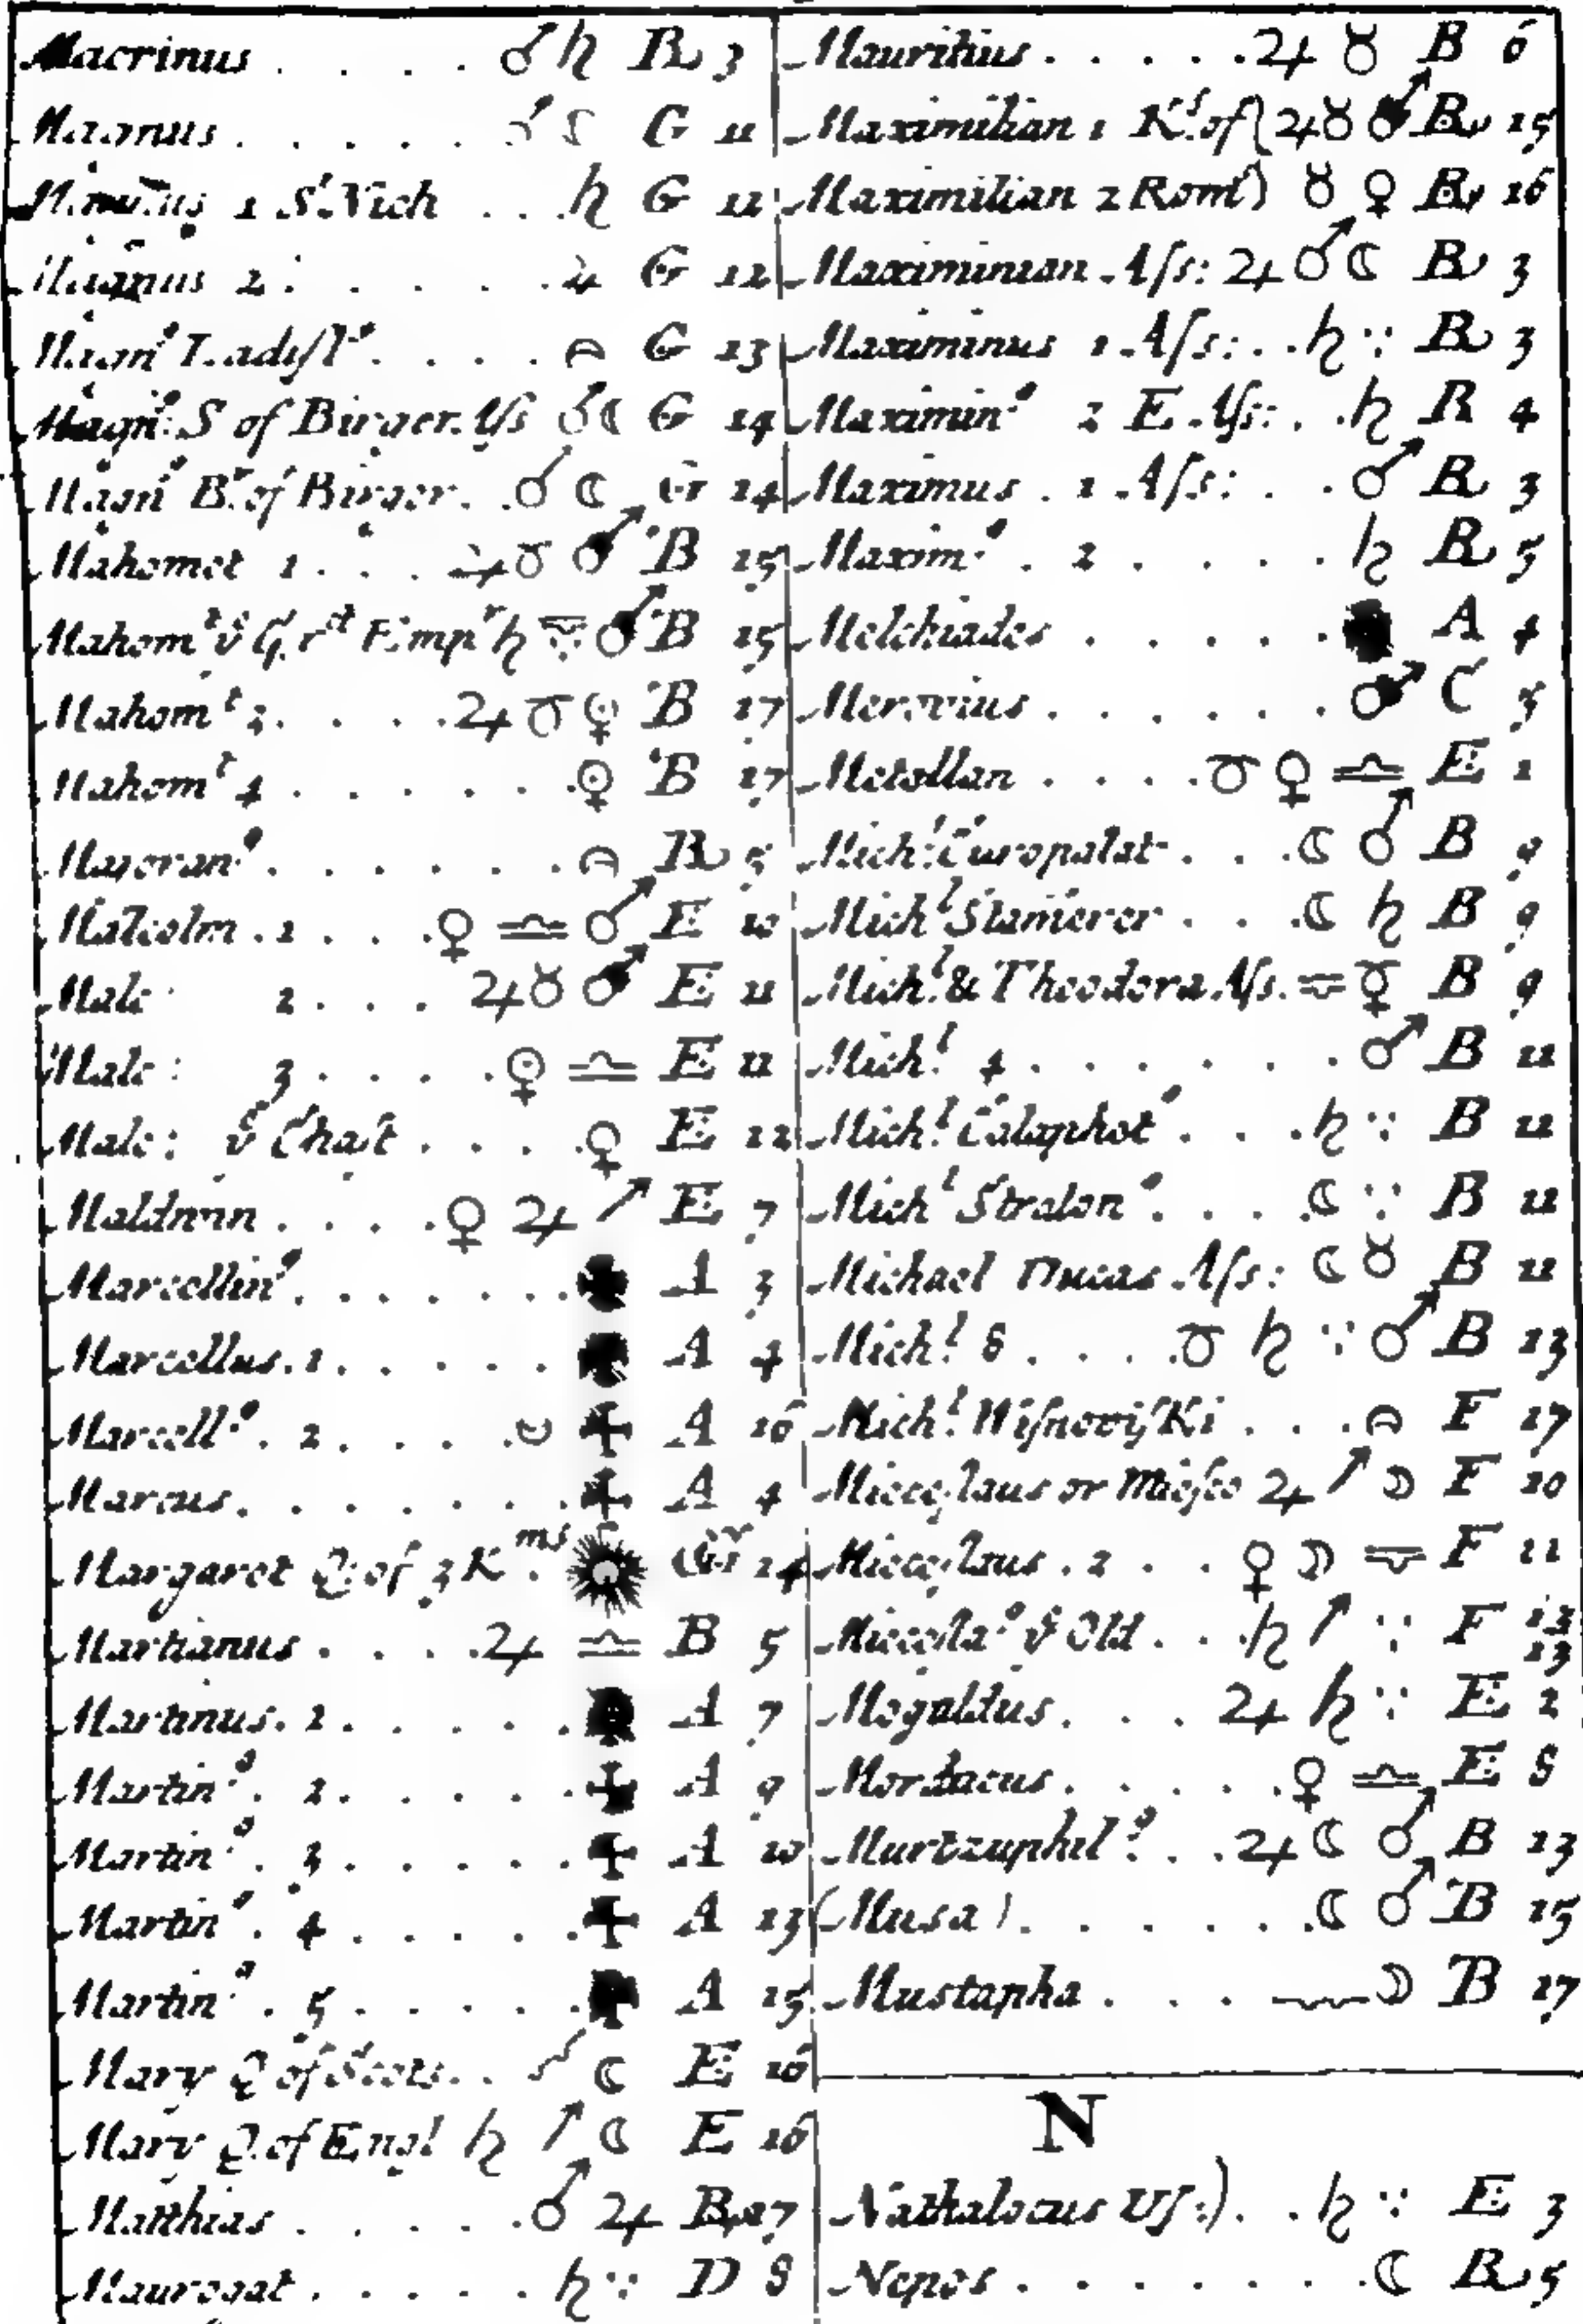 Macrinus . . . . ♂ ♄ R 3
Magnus . . . . . ♂ G 11
1 St Nich . . . ♄ G 11
Magnus 2 . . . . . . ♃ G 12
Magn.º Ladisl.º . . . . G 13
Magn.º S of Birger. Ass ♂ ☾ G 14
Magn.º Br. of Birger . . ♂ ☾ G 14
Mahomet 1 . . . ♃ ♉ ♂ B 15
Mahom.t ẙ Gr.st Emp.r ♄ ∵ ♂ B 15
Mahom.t 3 . . . . ♃ ♉ ☿ B 17
Mahom.t 4 . . . . . . ♀ B 17
Majoran.º . . . . . . R 5
Malcolm . 1 . . . ♀ ♎ ♂ E 10
Malc 2 . . . ♃ ♉ ♂ E 11
Malc : 3 . . . . ♀ ♎ E 11
Malc : ẙ Chast . . . . ♀ E 12
Maldwin . . . . ♀ ♃ ↗ E 7
Marcellin.º . . . . . . ✠ A 3
Marcellus . 1 . . . . . ✠ A 4
Marcell.º . 2 . . . . ✠ A 16
Marcus . . . . . . . ✠ A 4
Margaret Q: of 3 K.ms . ☀ Gr 14
Martianus . . . . ♃ ♎ B 5
Martinus . 1 . . . . . ✠ A 7
Martin.º . 2 . . . . . ✠ A 9
Martin.º . 3 . . . . . ✠ A 10
Martin.º . 4 . . . . . ✠ A 13
Martin.º . 5 . . . . . ✠ A 15
Mary Q of Scots . . ☾ E 16
Mary Q. of Engl ♄ ↗ ☾ E 16
Matthias . . . . . ♂ ♃ R 17
Mauregat . . . . . ♄ ∵ D 8
Mauritius . . . . . ♃ ♉ B 6
Maximilian 1 K.s of ( ♃ ♉ ♂ R 15
Maximilian 2 Rom.s ) ♉ ♀ R 16
Maximinian . Aſs : ♃ ♂ ☾ R 3
Maximinus 1 . Aſs : . . ♄ ∵ R 3
Maximin.º 2 E . Aſs : . . ♄ R 4
Maximus . 1 . Aſs : . . ♂ R 3
Maxim.º . 2 . . . . ♄ R 5
Melchiades . . . . . ✠ A 4
Merovius . . . . . . ♂ C 5
Metallan . . . . ♉ ♀ ♎ E 1
Mich.l Curopalat . . . ☾ ♂ B 9
Mich.l Stamerer . . . ☾ ♄ B 9
Mich.l & Theodora Aſs . ☿ B 9
Mich.l 4 . . . . . . ♂ B 11
Mich.l Calaphot.º . . . ♄ ∵ B 11
Mich.l Straton.º . . . ☾ ∵ B 11
Michael Ducas Aſs : ☾ ♉ B 11
Mich.l 8 . . . . ♉ ♄ ∵ ♂ B 13
Mich.l WiſnoviſKi . . . F 17
Mieceſlaus or Mieſco ♃ ↗ ☽ F 10
Mieceſlaus . 2 . . ♀ ☽ F 11
Mieceſla.º ẙ Old . . . ♄ ↗ ∵ F 12 13
Mogaldus . . . ♃ ♄ ∵ E 2
Mordacus . . . . . ♀ ♎ E 8
Murtzuphil.º . . ♃ ☾ ♂ B 13
( Musa ) . . . . . . ☾ ♂ B 15
Mustapha . . . ☽ B 17
N
Nathalocus Uſ : ) . . ♄ ∵ E 3
Nepos . . . . . . . ☾ R 5